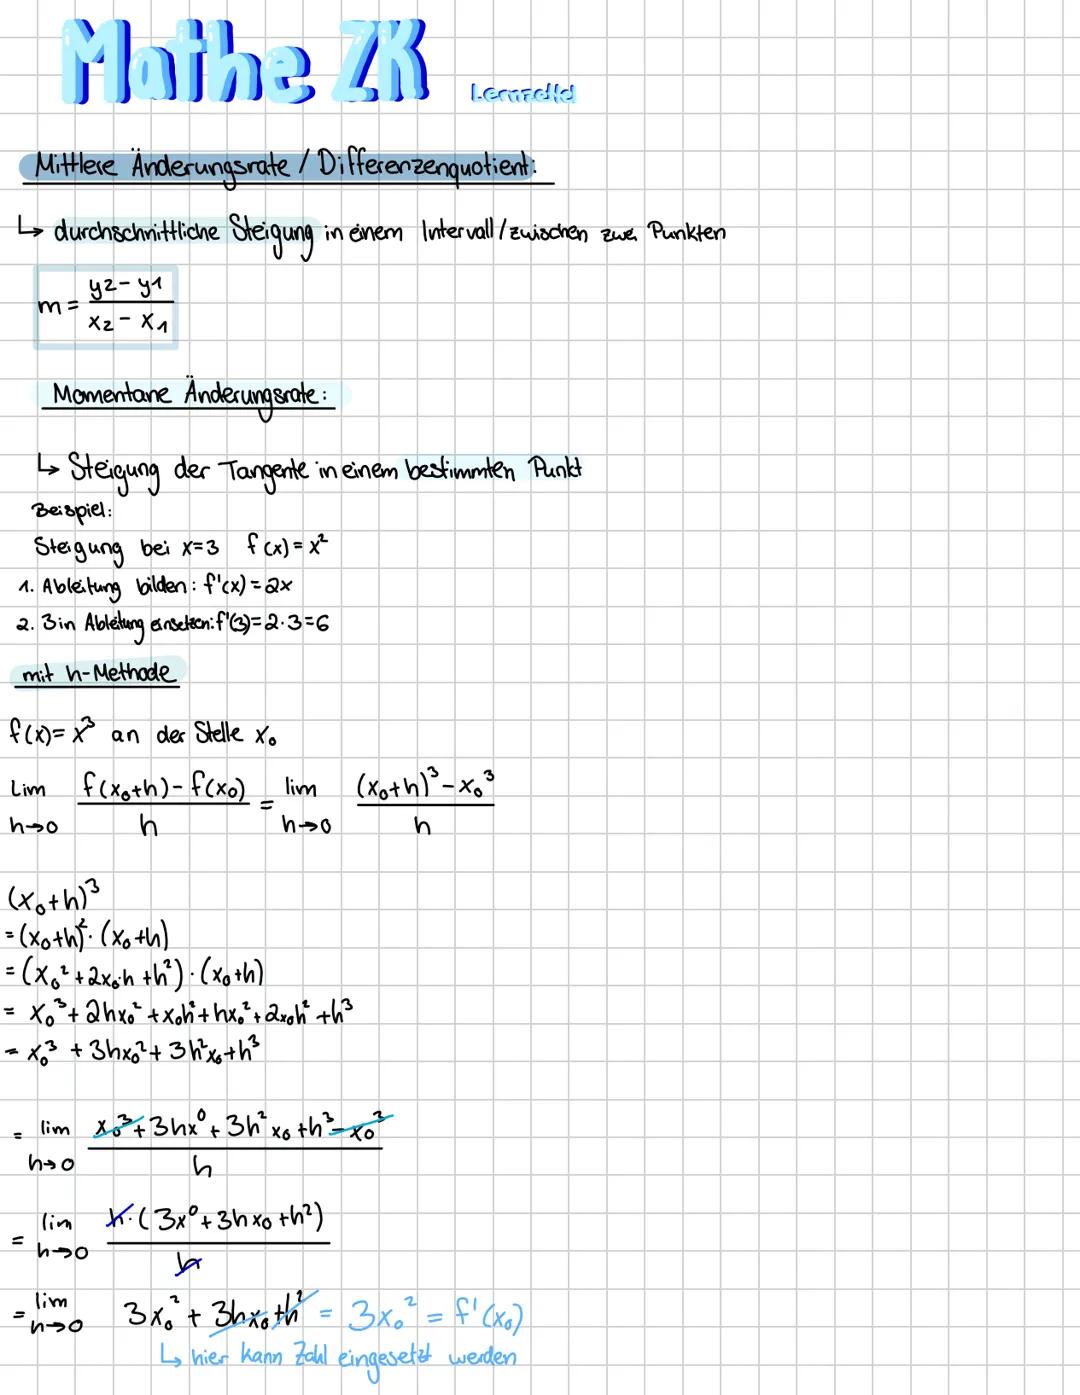 Mathe ZK Lernzettel
Mittlere Änderungsrate / Differenzenquotient:
↳ durchschnittliche Steigung in einem Intervall / zwischen zwei Punkten
m = (y2 - y1) / (x2 - x1)
Momentane Änderungsrate:
↳ Steigung der Tangente in einem bestimmten Punkt
Beispiel:
Steigung bei x=3 f(x) = x²
1. Ableitung bilden: f'(x) = 2x
2. 3 in Ableitung einsetzen: f'(3) = 2·3 = 6
mit h-Methode
f(x) = x³ an der Stelle x₀
Lim h→0 (f(x₀+h) - f(x₀)) / h = lim h→0 ((x₀+h)³ - x₀³) / h
(x₀+h)³
= (x₀+h)² · (x₀+h)
= (x₀² + 2x₀·h + h²) · (x₀+h)
= x₀³ + 2hx₀² + x₀h² + hx₀² + 2x₀h² + h³
= x₀³ + 3hx₀² + 3h²x₀ + h³
= lim h→0 (x₀³ + 3hx⁰ + 3h²x₀ + h³ - x₀³) / h
= lim h→0 h·(3x⁰ + 3hx₀ + h²) / h
= lim h→0 3x₀² + 3hx₀ + h² = 3x₀² = f'(x₀)
↳ hier kann Zahl eingesetzt werden